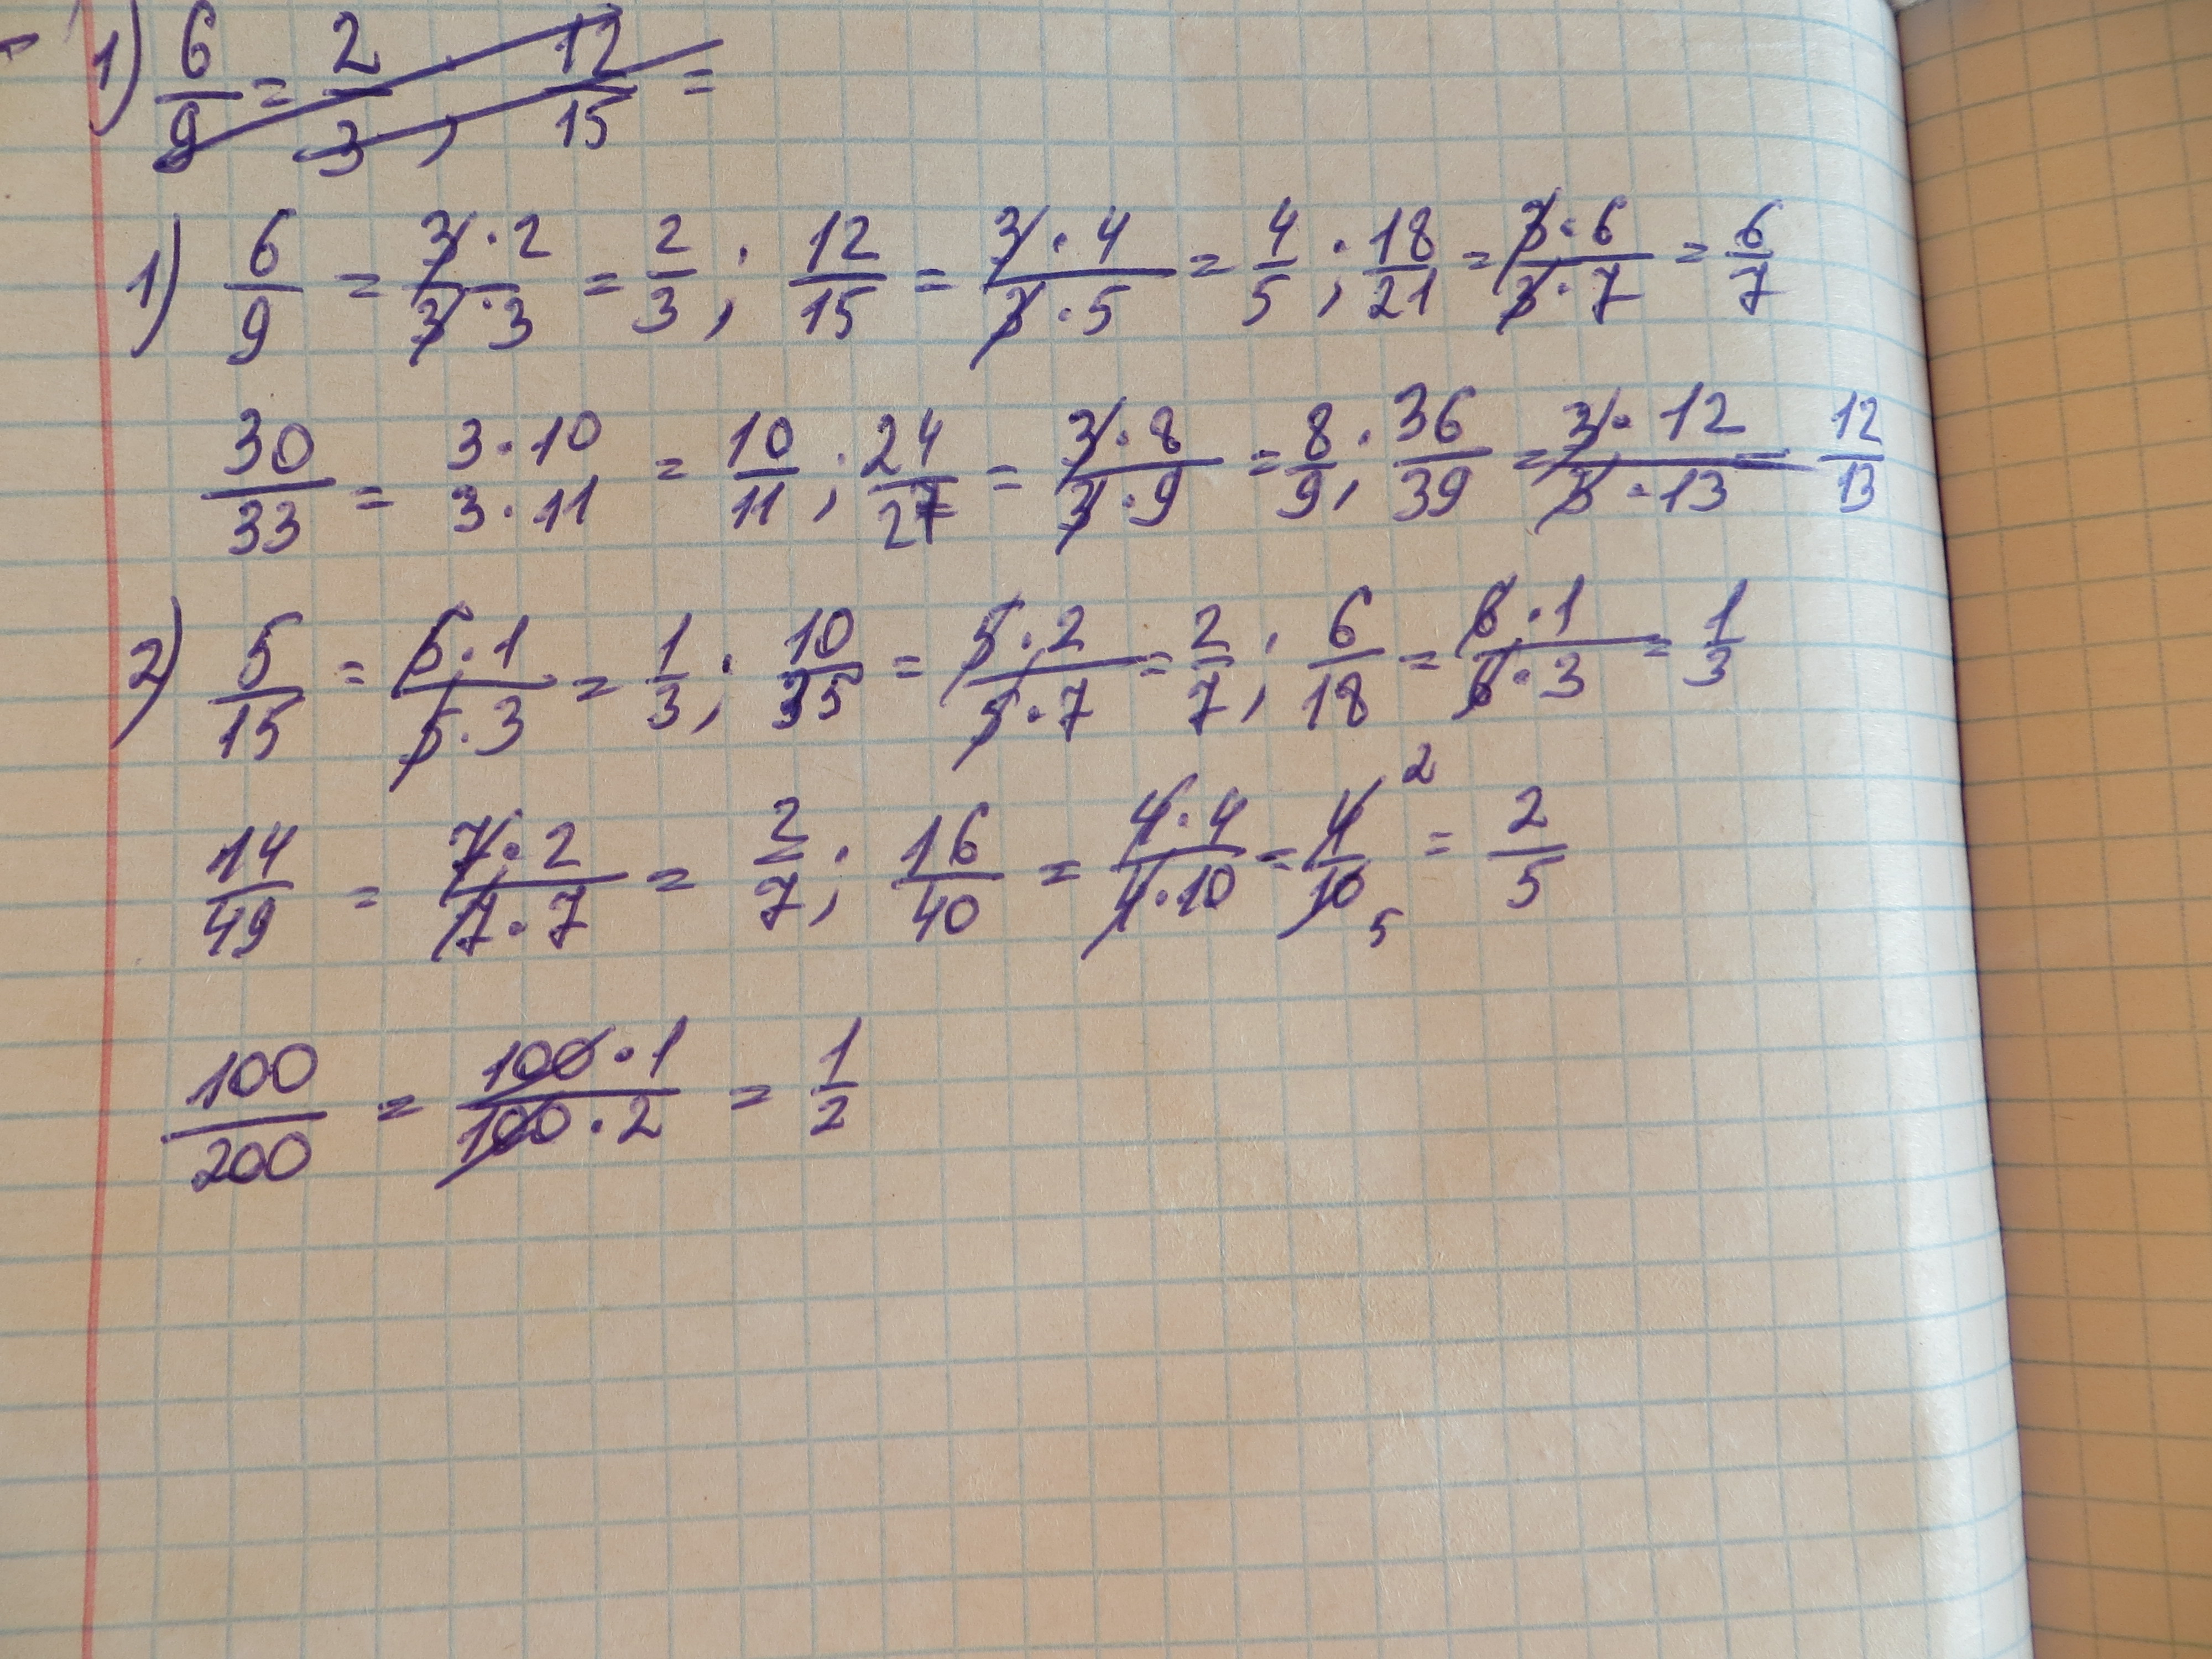 1) 6/9 = 2/3, 12/15 =
1) 6/9 = 3·2/3·3 = 2/3; 12/15 = 3·4/3·5 = 4/5; 18/21 = 3·6/3·7 = 6/7
30/33 = 3·10/3·11 = 10/11; 24/27 = 3·8/3·9 = 8/9; 36/39 = 3·12/3·13 = 12/13
2) 5/15 = 5·1/5·3 = 1/3; 10/35 = 5·2/5·7 = 2/7; 6/18 = 6·1/6·3 = 1/3
14/49 = 7·2/7·7 = 2/7; 16/40 = 4·4/4·10 = 4 2/10 5 = 2/5
100/200 = 100·1/100·2 = 1/2